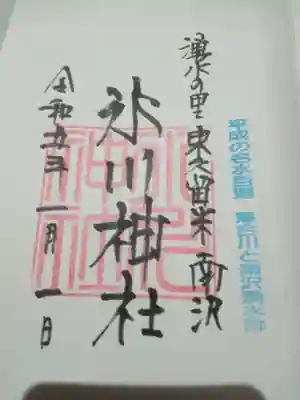 平成の名水百選 落合川と南沢湧水群
湧水の里 東久留米 南沢
氷川神社
令和五年一月一日